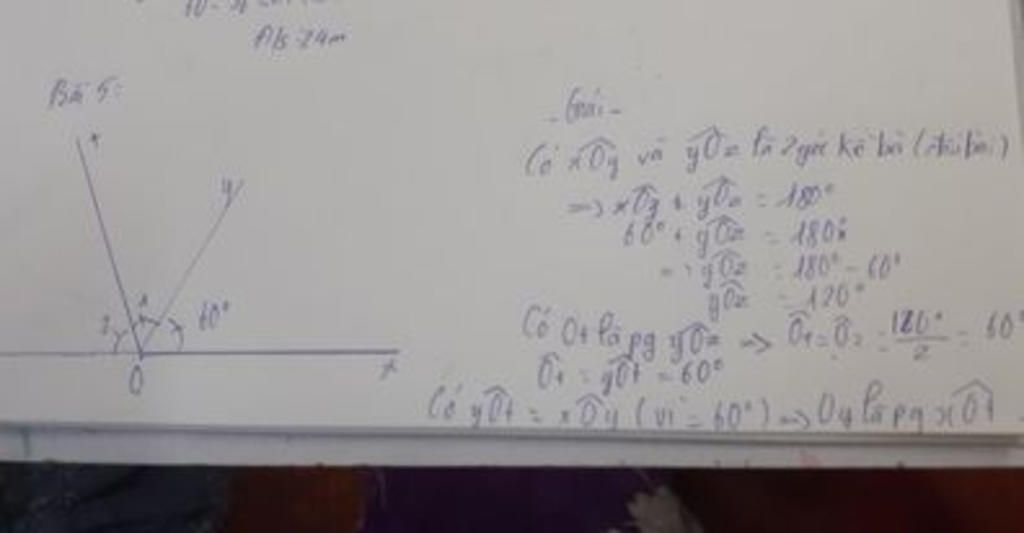 Bài 5:
t
y
2
1
60°
O
x
- Giải -
Có xÔy và yÔz là 2 góc kề bù (đầu bài)
=> xÔy + yÔz = 180°
60° + yÔz = 180°
=> yÔz = 180° - 60°
yÔz = 120°
Có Ot là pg yÔz => Ô1 = Ô2 = 120°/2 = 60°
Ô1 = yÔt = 60°
Có yÔt = xÔy (vì = 60°) => Oy là pg xÔt